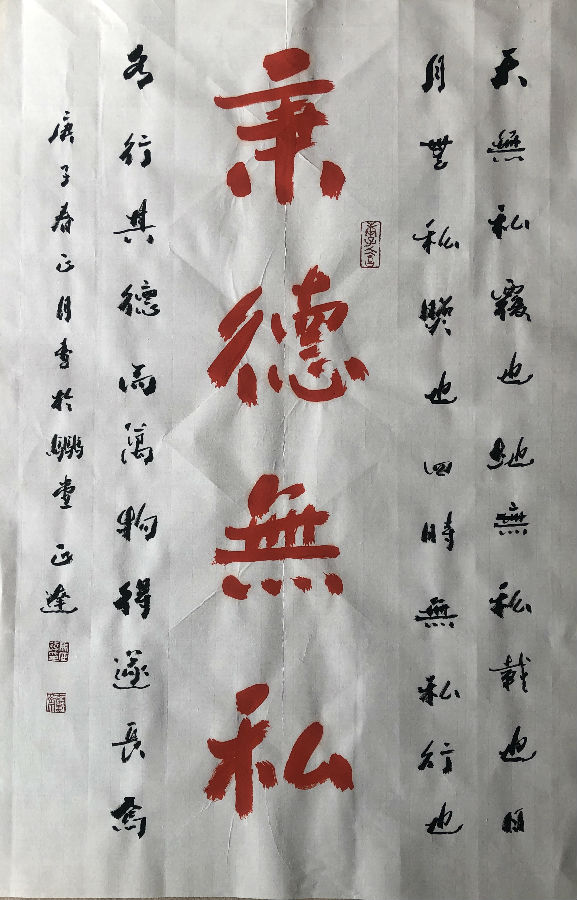 天無私覆也地無私載也日
月無私燭也四時無私行也
秉德無私
各行其德而萬物得遂長焉
庚子春正月書於鵬堂正達